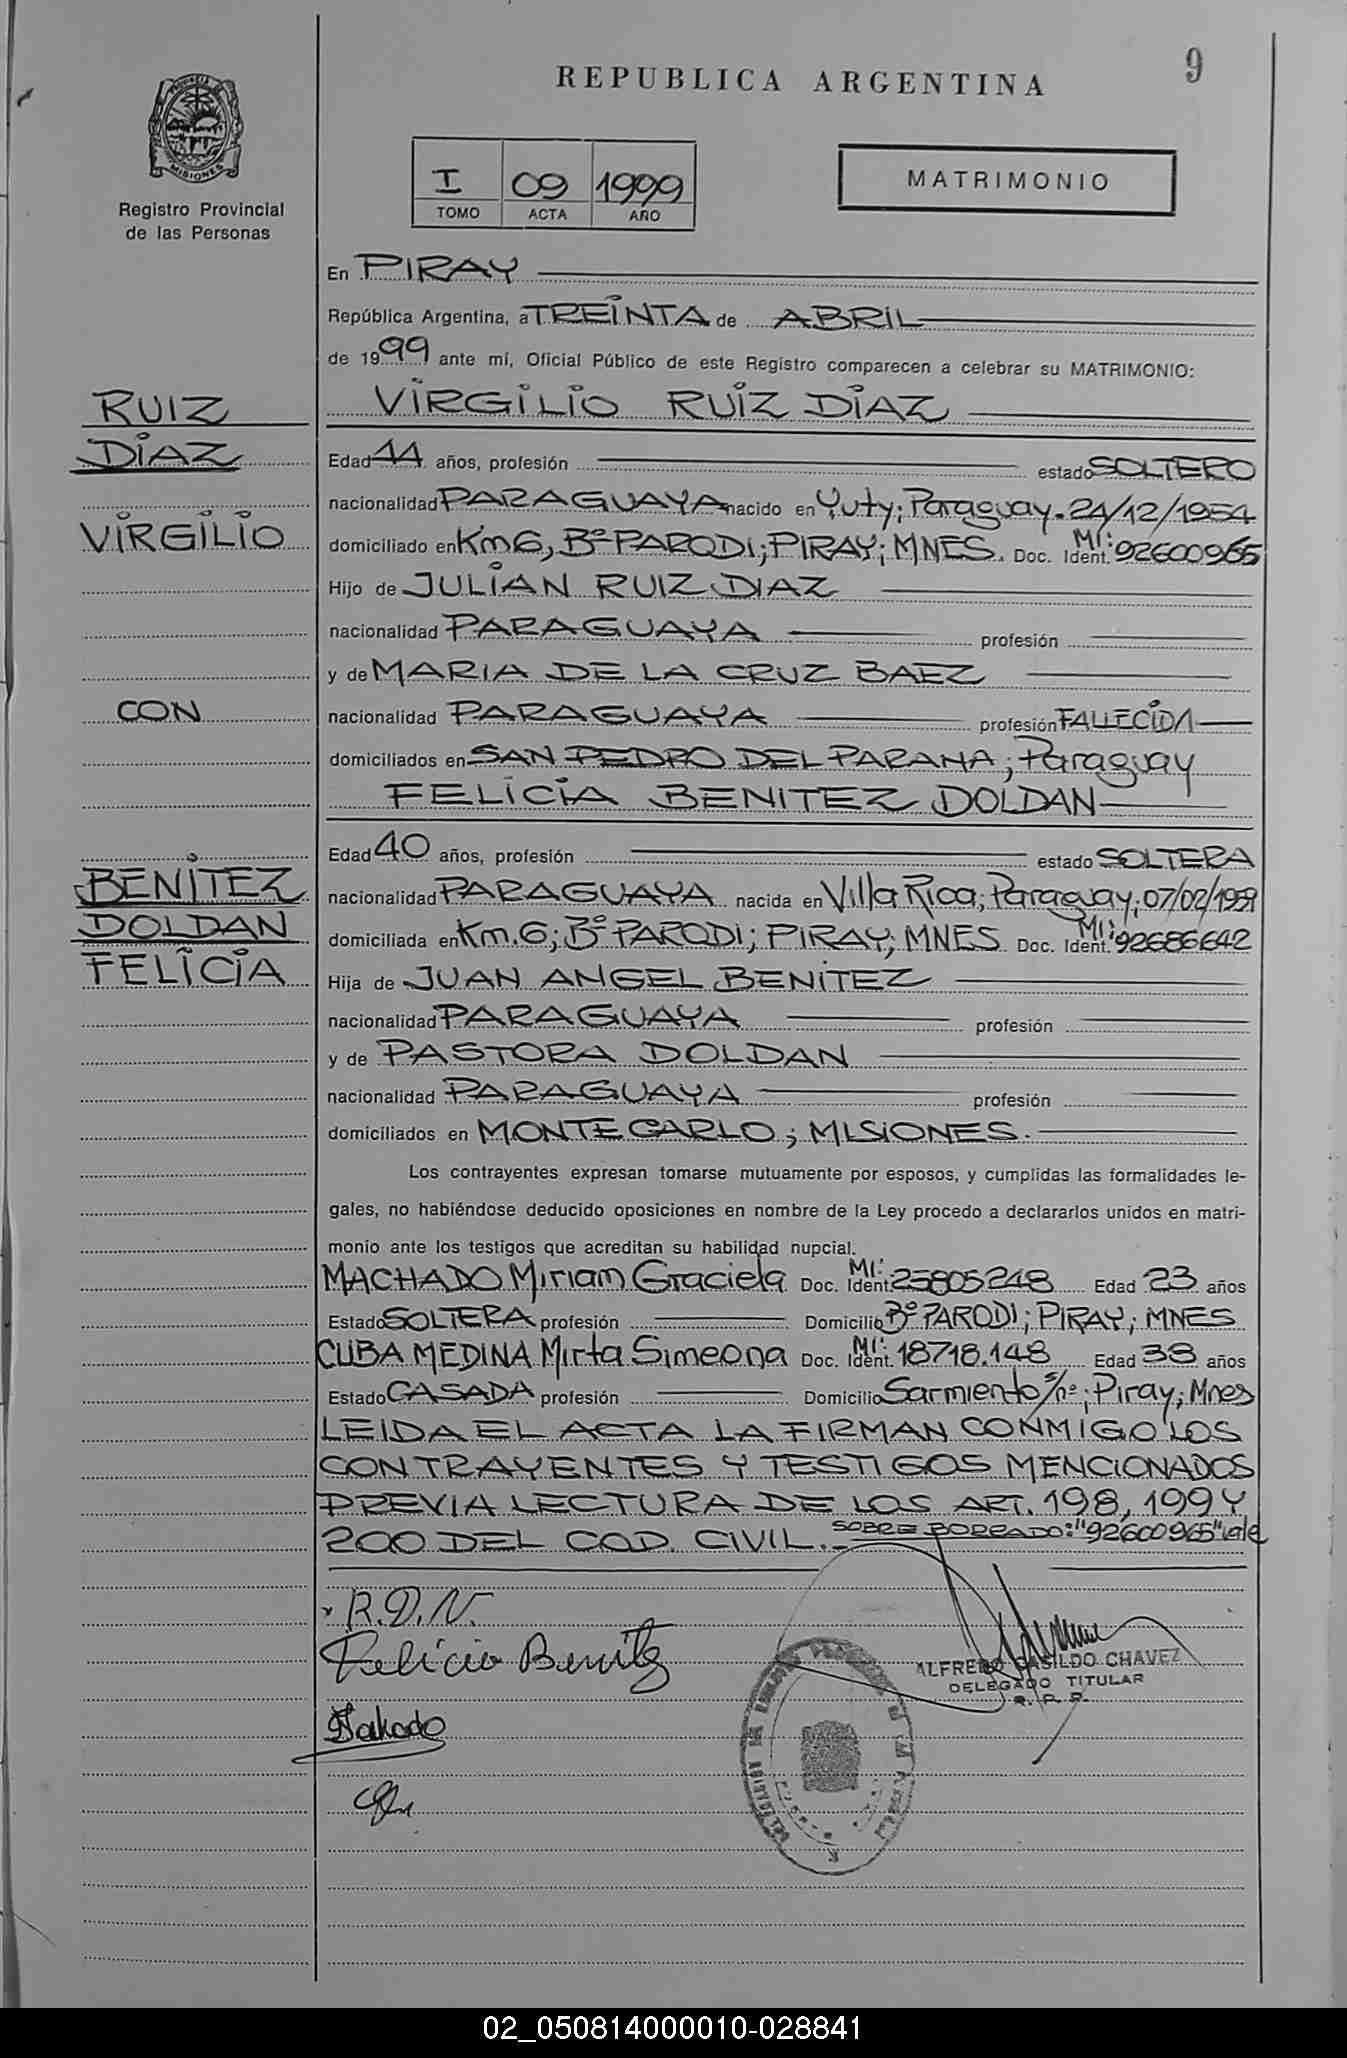 9
REPUBLICA ARGENTINA
MISIONES
Registro Provincial
de las Personas
I 09 1999
TOMO ACTA AÑO
MATRIMONIO
En PIRAY
República Argentina, a TREINTA de ABRIL
de 1999 ante mí, Oficial Público de este Registro comparecen a celebrar su MATRIMONIO:
RUIZ
DIAZ
VIRGILIO
CON
BENITEZ
DOLDAN
FELICIA
VIRGILIO RUIZ DIAZ
Edad 44 años, profesión estado SOLTERO
nacionalidad PARAGUAYA nacido en Yuty; Paraguay. 24/12/1954
domiciliado en Km 6, Bº PARODI; PIRAY; MNES. Doc. Ident. MI: 92600965
Hijo de JULIAN RUIZ DIAZ
nacionalidad PARAGUAYA profesión
y de MARIA DE LA CRUZ BAEZ
nacionalidad PARAGUAYA profesión FALLECIDA
domiciliados en SAN PEDRO DEL PARANA; Paraguay
FELICIA BENITEZ DOLDAN
Edad 40 años, profesión estado SOLTERA
nacionalidad PARAGUAYA nacida en Villa Rica; Paraguay; 07/02/1959
domiciliada en Km. 6; Bº PARODI; PIRAY; MNES Doc. Ident. MI: 92686642
Hija de JUAN ANGEL BENITEZ
nacionalidad PARAGUAYA profesión
y de PASTORA DOLDAN
nacionalidad PARAGUAYA profesión
domiciliados en MONTECARLO; MISIONES.
Los contrayentes expresan tomarse mutuamente por esposos, y cumplidas las formalidades le-
gales, no habiéndose deducido oposiciones en nombre de la Ley procedo a declararlos unidos en matri-
monio ante los testigos que acreditan su habilidad nupcial.
MACHADO Miriam Graciela Doc. Ident. MI: 25805248 Edad 23 años
Estado SOLTERA profesión Domicilio Bº PARODI; PIRAY; MNES
CUBA MEDINA Mirta Simeona Doc. Ident. MI: 18718.148 Edad 38 años
Estado CASADA profesión Domicilio Sarmiento s/nº; Piray; Mnes
LEIDA EL ACTA LA FIRMAN CONMIGO LOS
CONTRAYENTES Y TESTIGOS MENCIONADOS
PREVIA LECTURA DE LOS ART. 198, 199 Y
200 DEL COD. CIVIL. SOBRE BORRADO: "92600965" vale
R.D.V.
Felicia Benitz
ALFREDO CASILDO CHAVEZ
DELEGADO TITULAR
R. P. P.
02_050814000010-028841